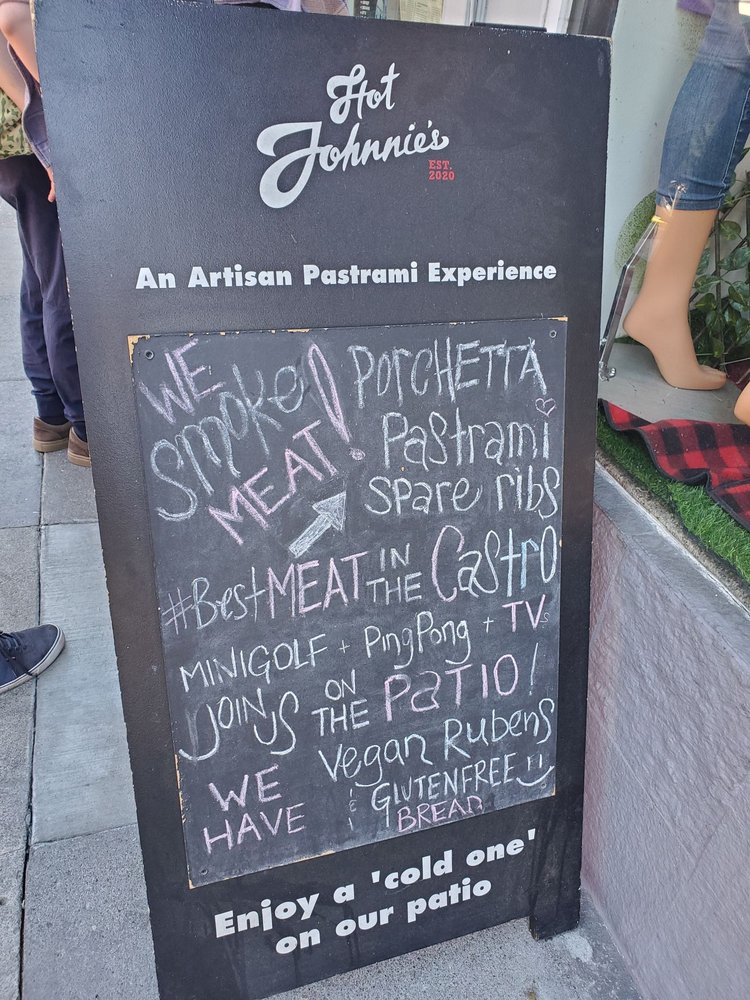 Hot
Johnnie's
EST.
2020
An Artisan Pastrami Experience
WE
Smoke
MEAT!
PORCHETTA
Pastrami
Spare ribs
#Best MEAT IN THE Castro
MINIGOLF + PingPong + TVs
JOIN US ON THE PATIO!
WE HAVE
Vegan Rubens
& GLUTENFREE
BREAD
Enjoy a 'cold one'
on our patio